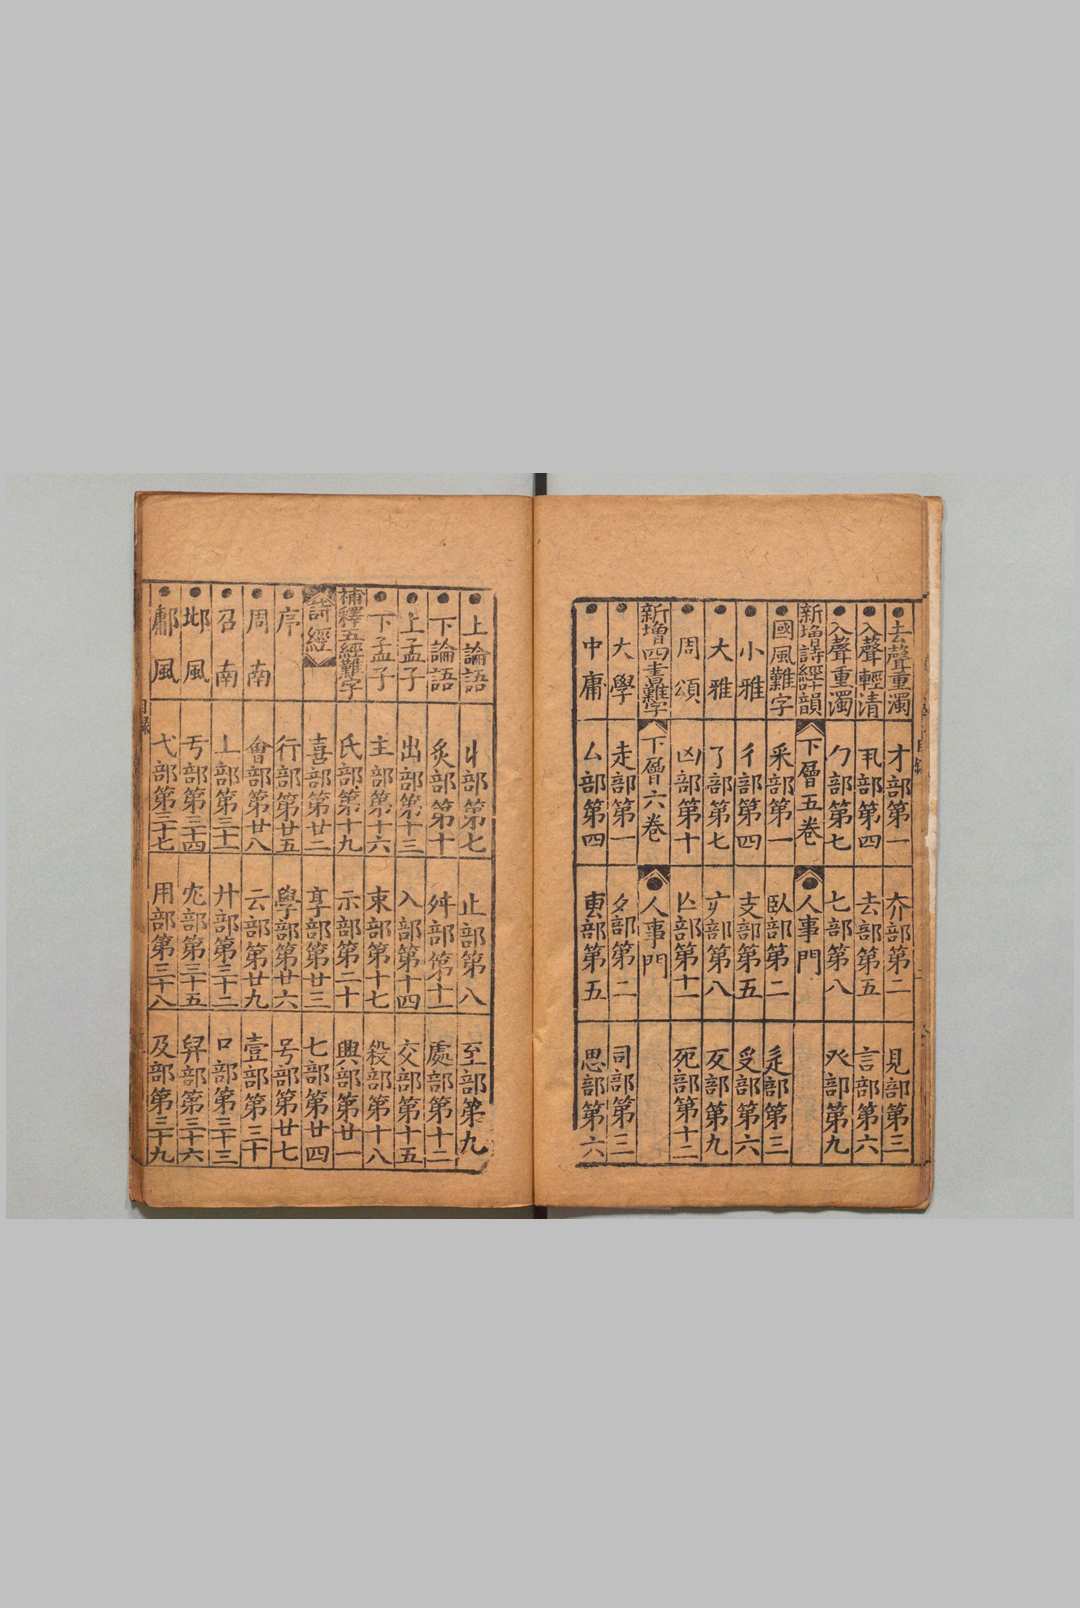 去聲重濁
才部第一
夰部第二
見部第三
入聲輕清
丮部第四
去部第五
言部第六
入聲重濁
勹部第七
七部第八
癶部第九
新增詩經韻
下層五卷
人事門
國風難字
釆部第一
臥部第二
辵部第三
小雅
彳部第四
支部第五
㕛部第六
大雅
了部第七
亠部第八
攵部第九
周頌
凶部第十
部第十一
死部第十二
新增四書難字
下層六卷
人事門
大學
走部第一
夕部第二
司部第三
中庸
厶部第四
東部第五
思部第六
上論語
丩部第七
止部第八
至部第九
下論語
炙部第十
舛部第十一
處部第十二
上孟子
出部第十三
入部第十四
交部第十五
下孟子
主部第十六
束部第十七
殺部第十八
補釋五經難字
氏部第十九
示部第二十
興部第廿一
詩經
喜部第廿二
享部第廿三
七部第廿四
序
行部第廿五
學部第廿六
号部第廿七
周南
會部第廿八
云部第廿九
壹部第三十
召南
丄部第三十一
廾部第三十二
口部第三十三
邶風
丐部第三十四
部第三十五
舁部第三十六
鄘風
弋部第三十七
用部第三十八
及部第三十九
目錄